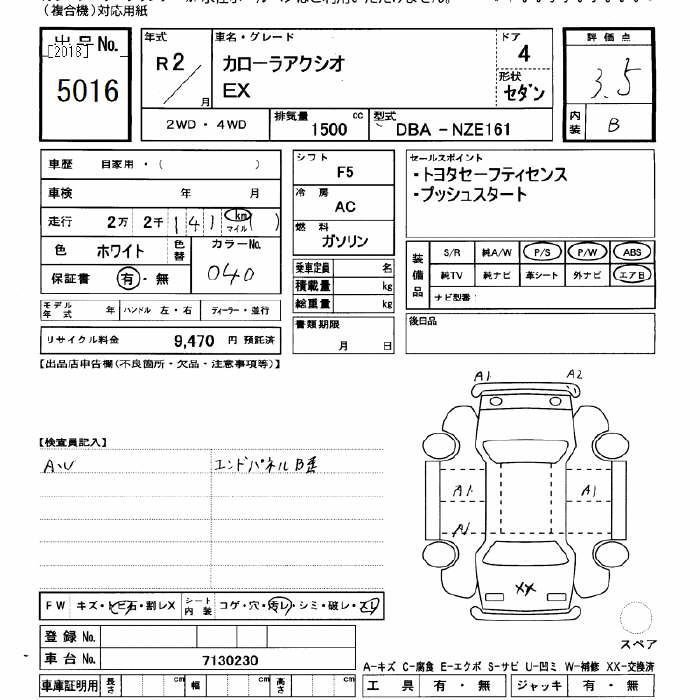 (複合機)対応用紙
出品No.
[2018]
5016
年式
R2 / 月
車名・グレード
カローラアクシオ
EX
ドア
4
形状
セダン
評価点
3.5
内装 B
2WD・4WD
排気量 1500 cc
型式 DBA - NZE161
車歴 自家用・( )
車検 年 月
走行 2万 2千 1 4 1 km マイル
色 ホワイト
色替
カラーNo.
040
保証書 有・無
シフト F5
冷房 AC
燃料 ガソリン
乗車定員 名
積載量 kg
総重量 kg
セールスポイント
・トヨタセーフティセンス
・プッシュスタート
装備品
S/R 純A/W P/S P/W ABS
純TV 純ナビ 革シート 外ナビ エアB
ナビ型番
モデル年式 年 ハンドル 左・右 ディーラー・並行
リサイクル料金 9,470 円 預託済
書類期限
月 日
後日品
【出品店申告欄(不良箇所・欠品・注意事項等)】
A1 A2
【検査員記入】
A・U エンドパネルB歪
A1 A1
A1
XX
FW キズ・トビ石・割レX
シート内装 コゲ・穴・汚レ・シミ・破レ・スレ
登録No.
車台No. 7130230
スペア
A-キズ C-腐食 E-エクボ S-サビ U-凹ミ W-補修 XX-交換済
車庫証明用 長さ cm 幅 cm 高さ cm
工具 有・無 ジャッキ 有・無